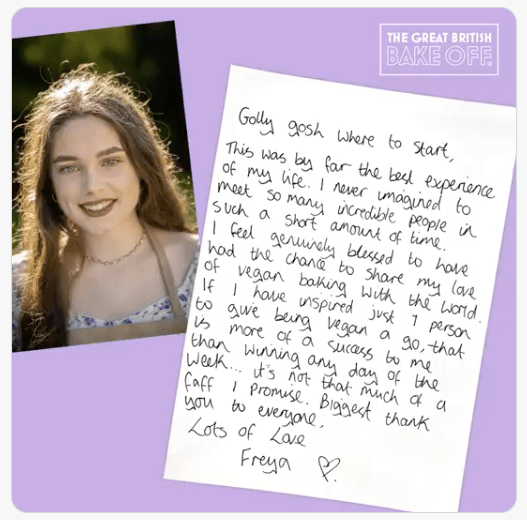 THE GREAT BRITISH
BAKE OFF
Golly gosh where to start,
This was by far the best experience
of my life. I never imagined to
meet so many incredible people in
such a short amount of time.
I feel genuinely blessed to have
had the chance to share my love
of vegan baking with the world.
If I have inspired just 1 person
to give being vegan a go, that
is more of a success to me
than winning any day of the
week... it's not that much of a
faff I promise. Biggest thank
you to everyone,
Lots of Love
Freya